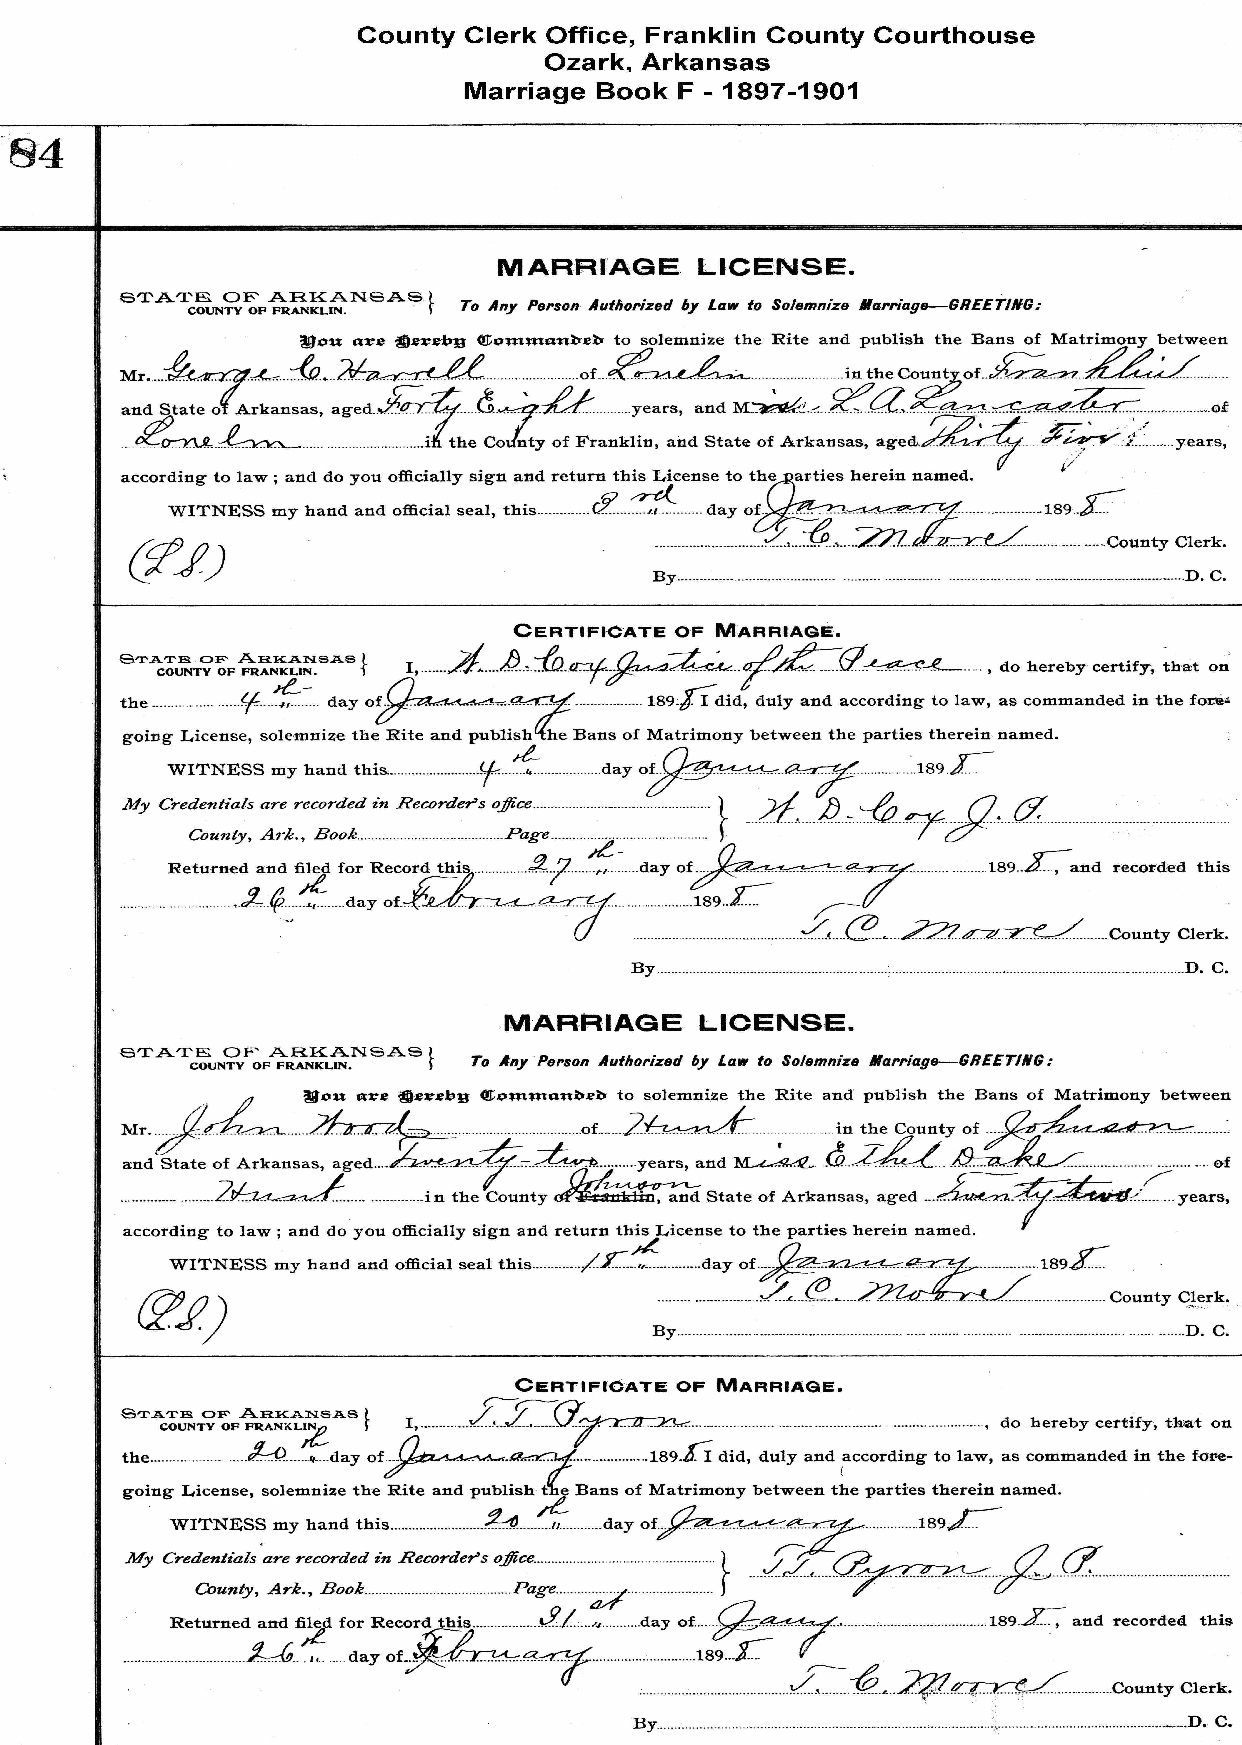 County Clerk Office, Franklin County Courthouse
Ozark, Arkansas
Marriage Book F - 1897-1901
84
MARRIAGE LICENSE.
STATE OF ARKANSAS } To Any Person Authorized by Law to Solemnize Marriage—GREETING:
COUNTY OF FRANKLIN.
You are Hereby Commanded to solemnize the Rite and publish the Bans of Matrimony between
Mr. George C. Harrell of Lonelm in the County of Franklin
and State of Arkansas, aged Forty Eight years, and Miss L. A. Lancaster of
Lonelm in the County of Franklin, and State of Arkansas, aged Thirty Five years,
according to law ; and do you officially sign and return this License to the parties herein named.
WITNESS my hand and official seal, this 3rd day of January 1898
T. C. Moore County Clerk.
(L.S.)
By D. C.
CERTIFICATE OF MARRIAGE.
STATE OF ARKANSAS } I, W. D. Coy Justice of the Peace , do hereby certify, that on
COUNTY OF FRANKLIN.
the 4th day of January 1898 I did, duly and according to law, as commanded in the fore-
going License, solemnize the Rite and publish the Bans of Matrimony between the parties therein named.
WITNESS my hand this 4th day of January 1898
My Credentials are recorded in Recorder's office } W. D. Coy J. P.
County, Ark., Book Page
Returned and filed for Record this 27th day of January 1898, and recorded this
26th day of February 1898
T. C. Moore County Clerk.
By D. C.
MARRIAGE LICENSE.
STATE OF ARKANSAS } To Any Person Authorized by Law to Solemnize Marriage—GREETING:
COUNTY OF FRANKLIN.
You are Hereby Commanded to solemnize the Rite and publish the Bans of Matrimony between
Mr. John Woods of Hunt in the County of Johnson
and State of Arkansas, aged twenty-two years, and Miss Ethel Dake of
Hunt in the County of Johnson Franklin, and State of Arkansas, aged Twenty two years,
according to law ; and do you officially sign and return this License to the parties herein named.
WITNESS my hand and official seal this 18th day of January 1898
T. C. Moore County Clerk.
(L.S.)
By D. C.
CERTIFICATE OF MARRIAGE.
STATE OF ARKANSAS } I, T. T. Pyron , do hereby certify, that on
COUNTY OF FRANKLIN
the 20th day of January 1898 I did, duly and according to law, as commanded in the fore-
going License, solemnize the Rite and publish the Bans of Matrimony between the parties therein named.
WITNESS my hand this 20th day of January 1898
My Credentials are recorded in Recorder's office } T.T. Pyron J. P.
County, Ark., Book Page
Returned and filed for Record this 31st day of Jany. 1898, and recorded this
26th day of February 1898
T. C. Moore County Clerk.
By D. C.